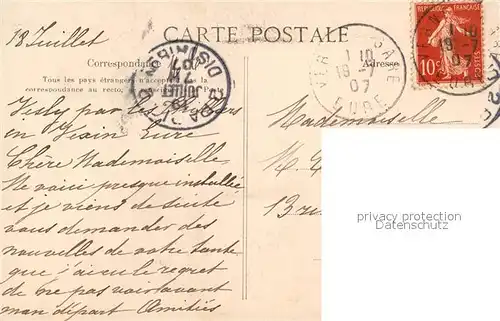 CARTE POSTALE
18 Juillet
Correspondance
Adresse
Tous les pays étrangers n'acceptent pas la
correspondance au recto,
RÉPUBLIQUE FRANÇAISE
10c
VER GARE
1 10
19-7
07
EURE
PARIS
DISTRIBUTION
Vesly par les
en Vexin Eure
Chère Mademoiselle
Me voici presque installée
et je viens de suite
vous demander des
nouvelles de votre tante
que j'ai eu le regret
de ne pas voir avant
mon départ Amitiés
Mademoiselle
M.
13 ru
privacy protection
Datenschutz